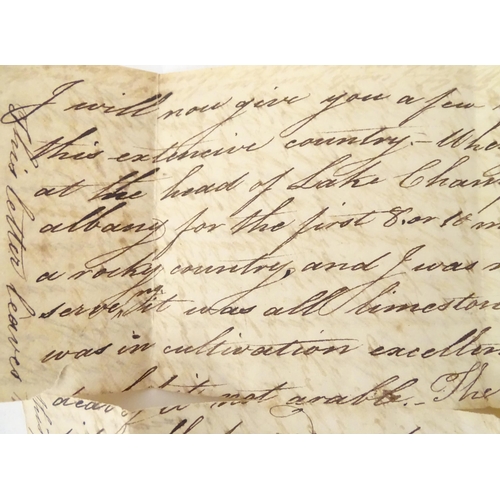 I will now give you a few
this extensive country.- Wh
at the head of Lake Cham
albany for the first 8. or 10 m
a rocky country, and I was
serve, it was all limeston
was in cultivation excellen
it not arable.- The
This letter leaves